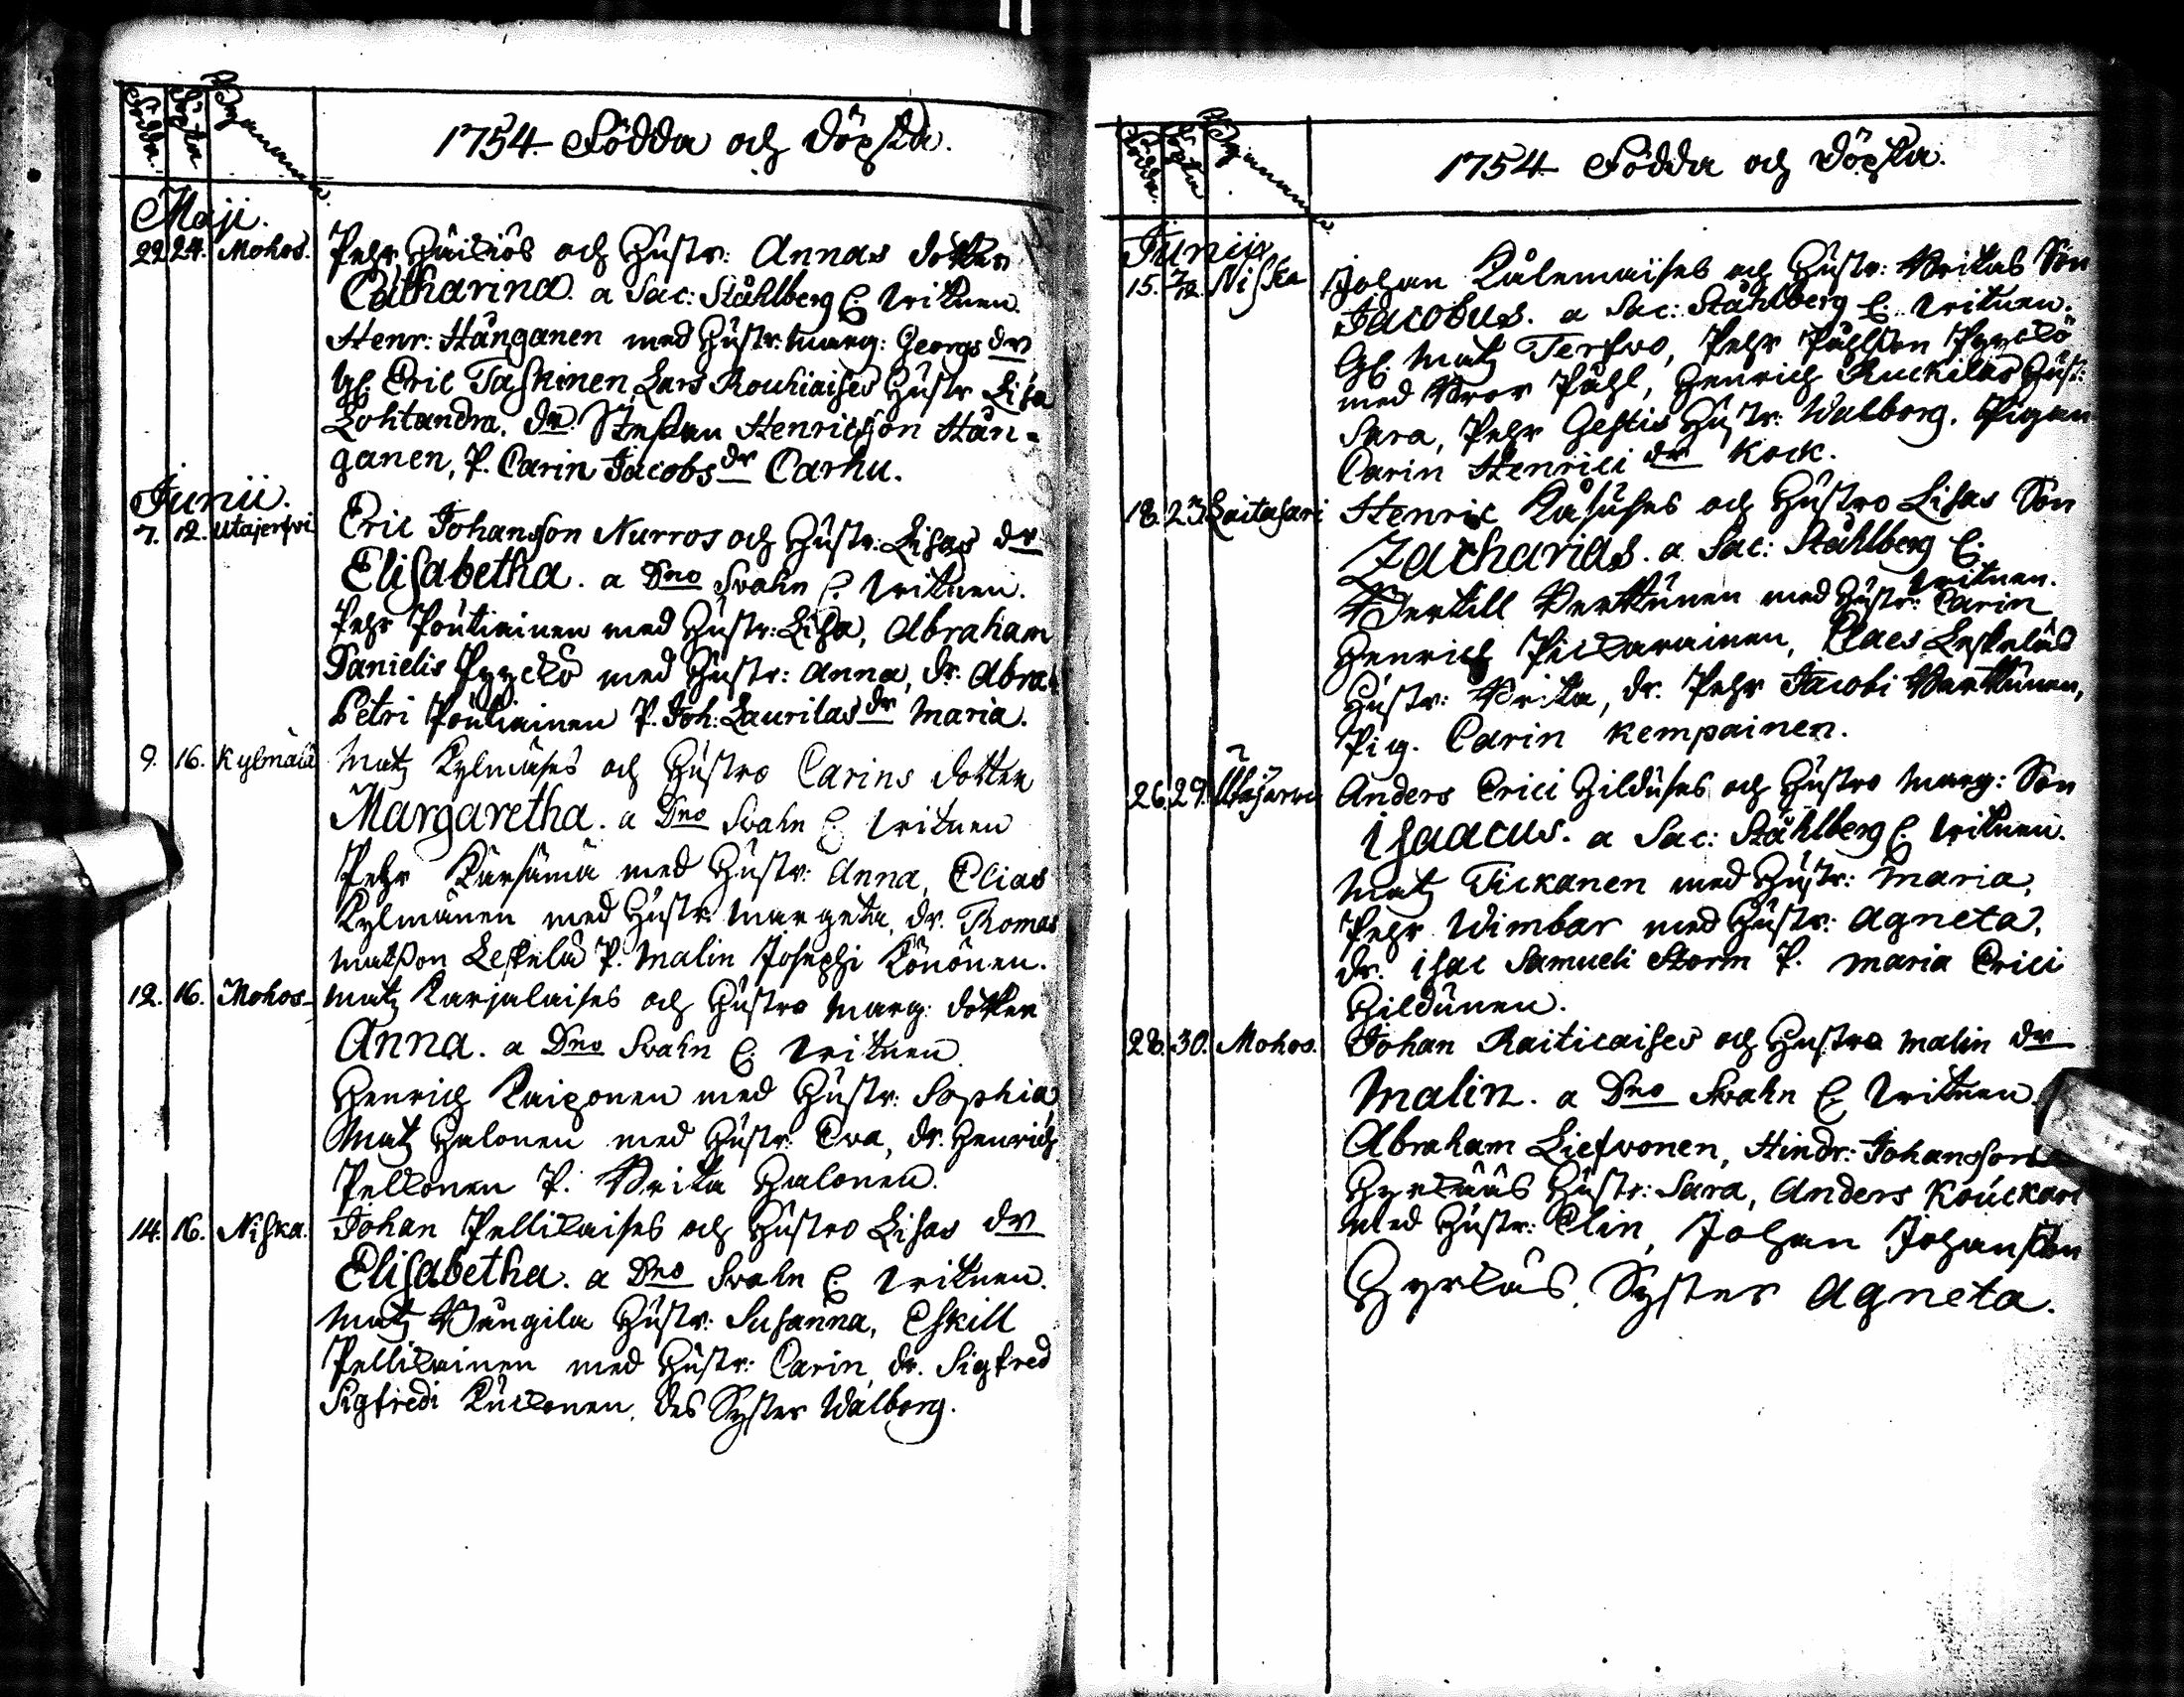 Födda. Döpta Bynamnen.
1754. Födda och Döpta.
Maji.
22 24. Mohos. Pehr Huikiös och Hustr: Annas dotter
Catharina. a Sac: Ståhlberg E. Vittnen.
Henr: Hänganen med Hustr: Marg: Georgs dr
Gl. Eric Taskinen, Lars Rouhiaises Hustr Lisa
Lohtandra. dr. Stephan Henricsson Hän-
ganen, P. Carin Jacobs dr Carhu.
Junii.
7. 12. Utajerfvi Eric Johansson Nurros och Hustr: Lisas dr
Elisabetha. a Dno Svahn E. Vittnen.
Pehr Poutiainen med Hustr: Lisa, Abraham
Danielis Pyyckö med Hustr: Anna, dr. Abra:
Petri Poutiainen P. Joh: Laurilas dr Maria.
9. 16. Kylmälä Matz Kylmäses och Hustro Carins dotter
Margaretha. a Dno Svahn E. Vittnen
Pehr Kärsämä med Hustr: Anna, Elias
Kylmänen med Hustr: Margeta, dr. Thomas
Matsson Leskelä P. Malin Josephi Könönen.
12. 16. Mohos Matz Karjalaises och Hustro Marg: dotter
Anna. a Dno Svahn E. Vittnen
Henrich Kaiponen med Hustr: Sophia,
Matz Halonen med Hustr: Eva, dr. Henrich
Pelkonen P. Brita Halonen.
14. 16. Niska. Johan Pellikaises och Hustro Lisas dr
Elisabetha. a Dno Svahn E. Vittnen.
Matz Hustr: Susanna, Eskill
Pellikainen med Hustr: Carin, dr. Sigfred
Sigfredi Kuckonen, des Syster Walborg.
Födda. Döpta Bynamnen.
1754 Födda och Döpta.
Junii
15. Niska Johan Kälemaises och Hustr: Britas Son
Jacobus. a Sac: Ståhlberg E. Vittnen.
Gl. Matz Terfvo, Pehr Påhlsson Pyyckö
med Bror Påhl, Henrich Ruckilas Hustr:
Sara, Pehr Hustr: Walborg. Pigan
Carin Henrici dr Kock.
18. 23. Laitasari Henric Kasuses och Hustro Lisas Son
Zacharias. a Sac: Ståhlberg E.
Vittnen.
Bertill Verttunen med Hustr: Carin
Henrich Pickarainen, Claes Leskeläs
Hustr: Brita, dr. Pehr Jacobi Verttunen,
Pig. Carin Kempainen.
26. 29. Utajärvi Anders Erici Hilduses och Hustro Marg: Son
Isaacus. a Sac: Ståhlberg E. Vittnen.
Matz Tickanen med Hustr: Maria,
Pehr Wimbar med Hustr: Agneta,
dr. Isac Samueli Storm P. Maria Erici
Hildunen.
28. 30. Mohos. Johan Raiticaises och Hustro Malin dr
Malin. a Dno Svahn E. Vittnen.
Abraham Liefvonen, Hindr: Johansson
Hyrkääs Hustr: Sara, Anders Kouckari
med Hustr: Elin, Johan Johansson
Hyrkäs, Syster Agneta.